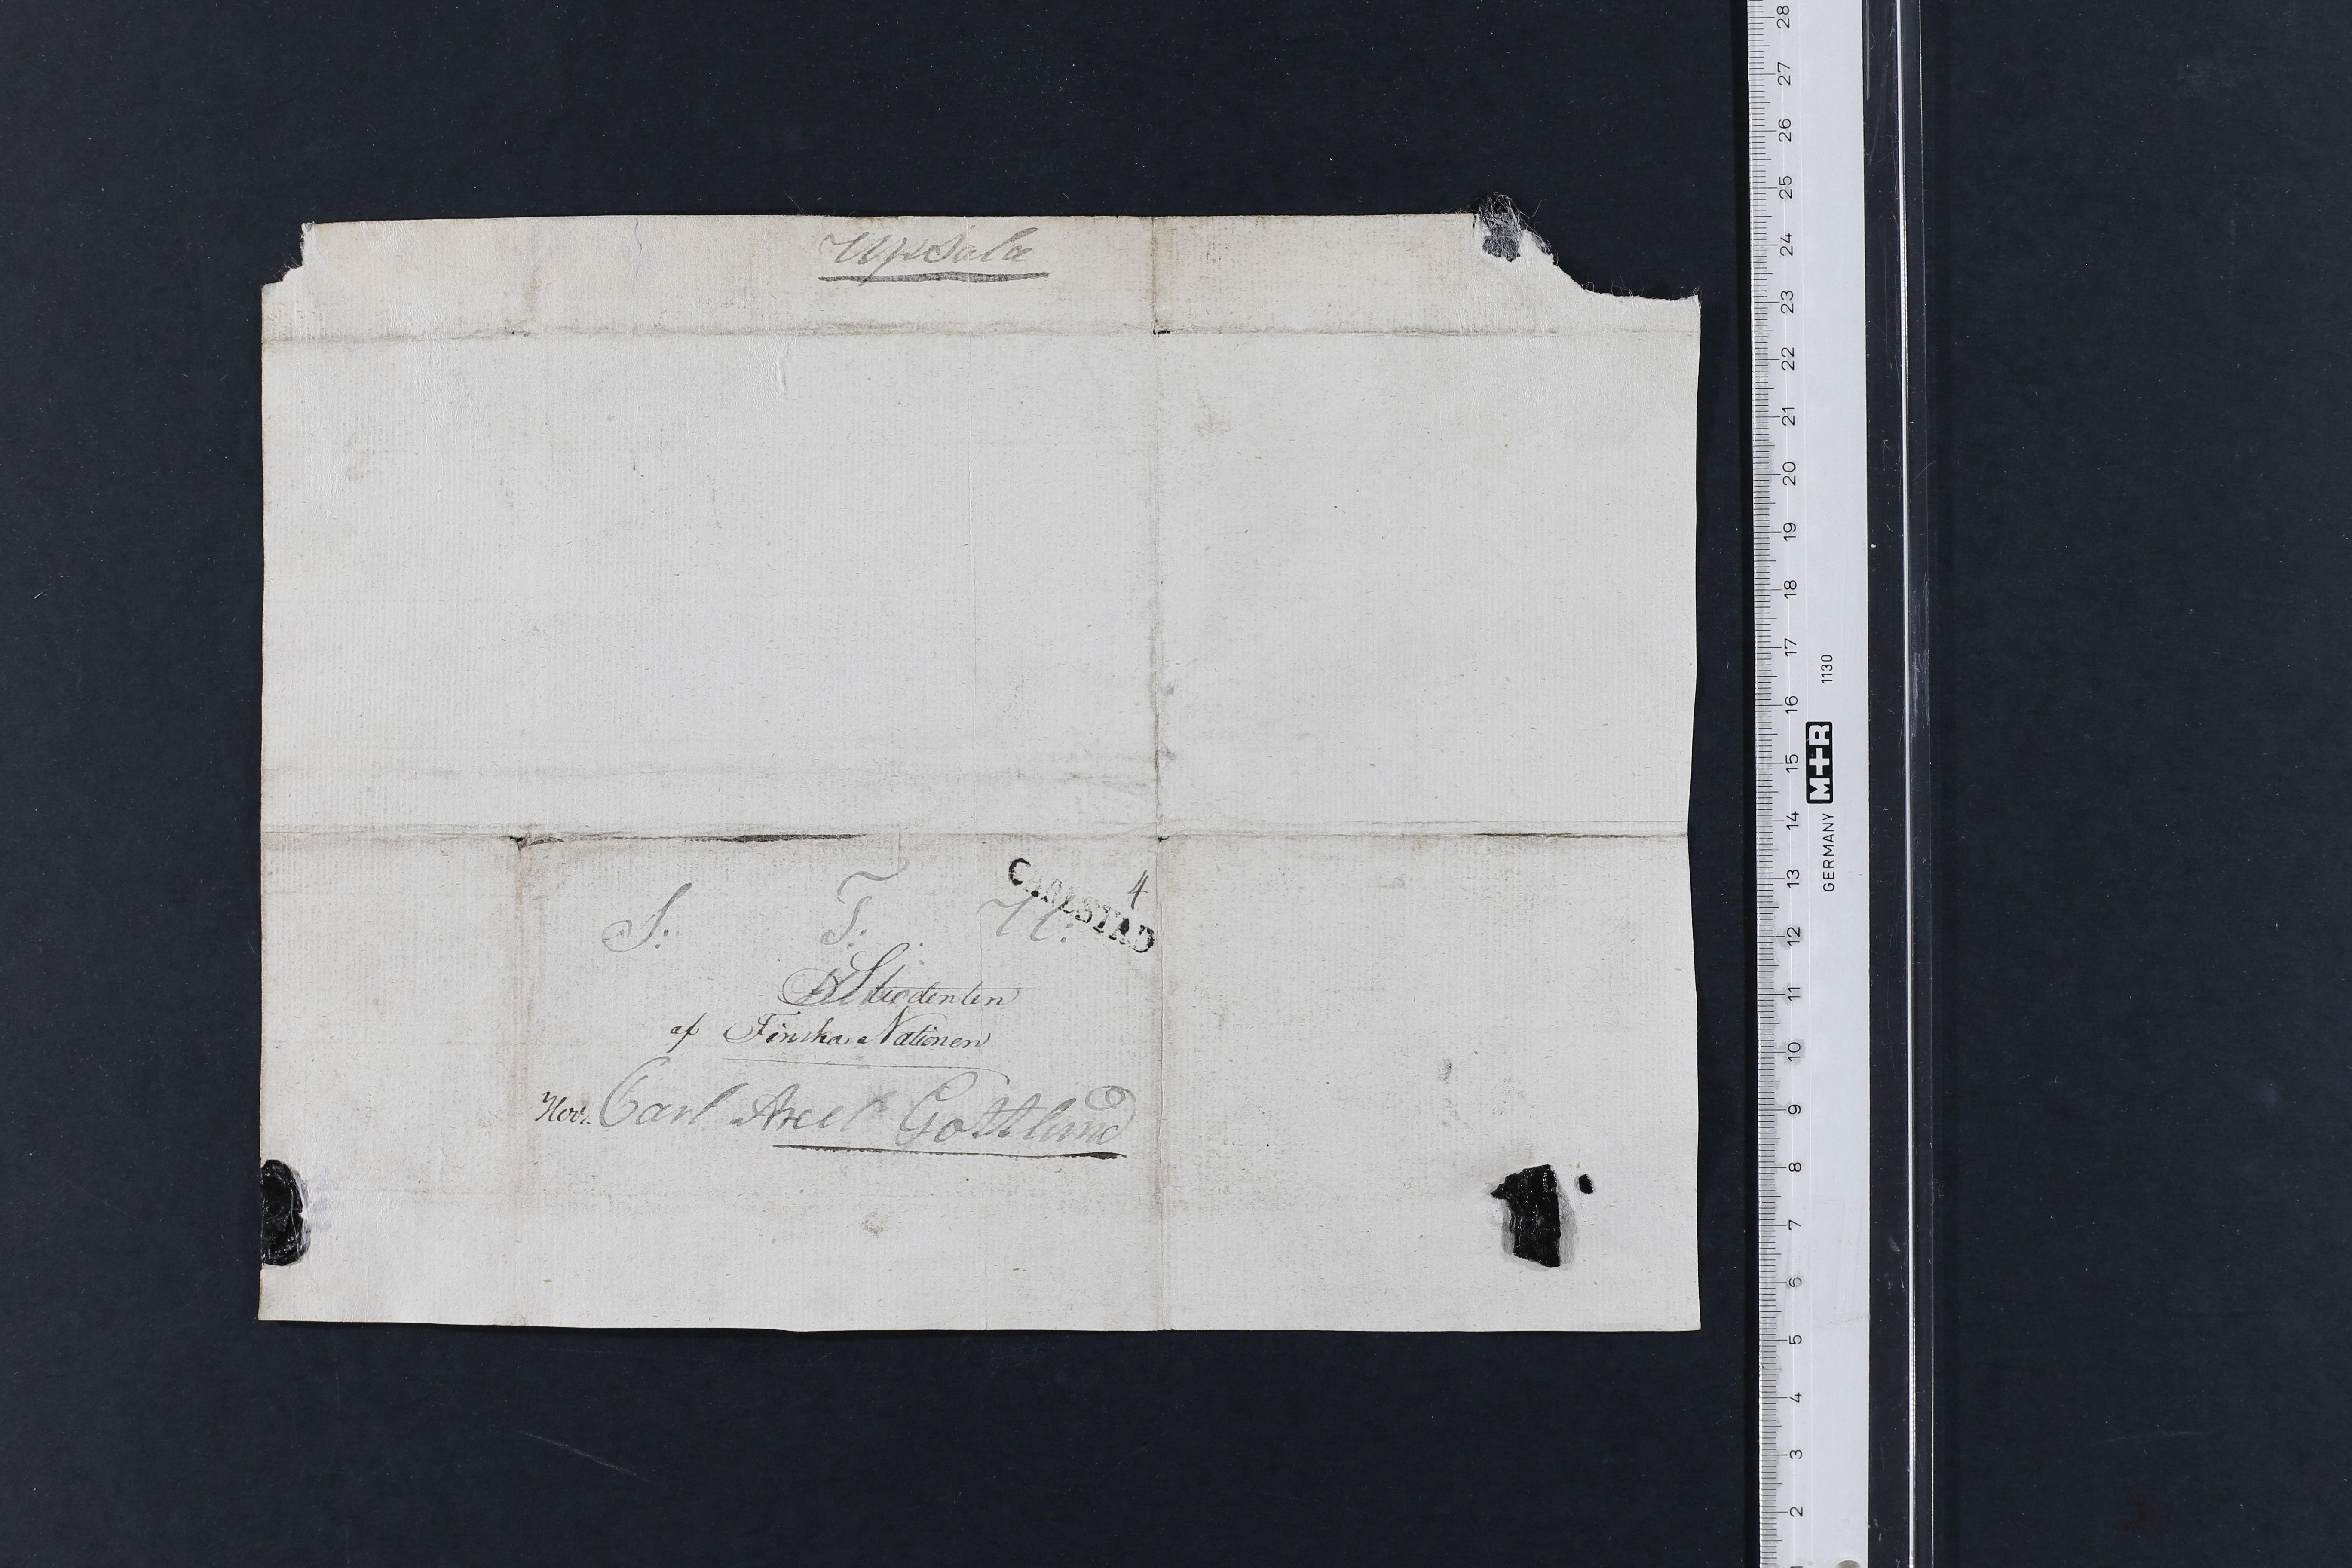 Upsala
4
CARLSTAD
S: T: H:
Studenten
af Finska Nationen
Herr. Carl Axel Gottlund
28
27
26
25
24
23
22
21
20
19
18
17
16
15
14
13
12
11
10
9
8
7
6
5
4
3
2
GERMANY M+R 1130